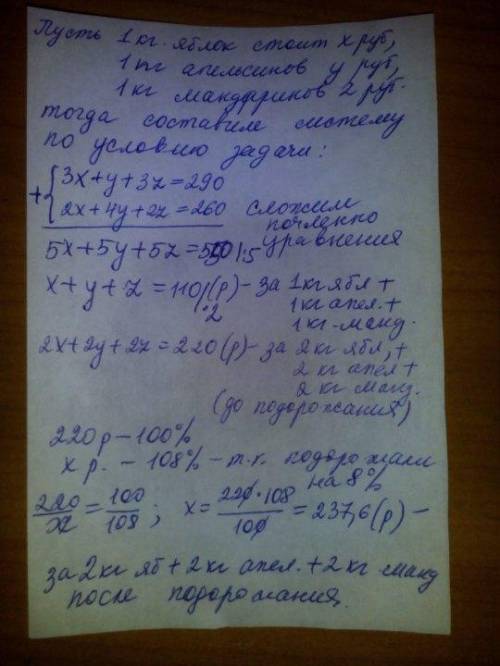 Пусть 1 кг. яблок стоит x руб,
1 кг апельсинов y руб,
1 кг мандаринов z руб.
тогда составим систему
по условию задачи:
+ { 3x+y+3z=290
2x+4y+2z=260 сложим
почленно
уравнения
5x+5y+5z=550 |:5
x+y+z=110 (р) - за 1кг ябл +
1кг апел. +
1кг. манд.
·2
2x+2y+2z=220(р) - за 2кг ябл, +
2 кг апел +
2 кг манд.
(до подорожания)
220 р - 100%
x р. - 108% - т.к. подорожали
на 8%
220/x = 100/108 ; x = 220·108/100 = 237,6(р) -
за 2кг яб + 2кг апел. + 2кг манд
после подорожания.